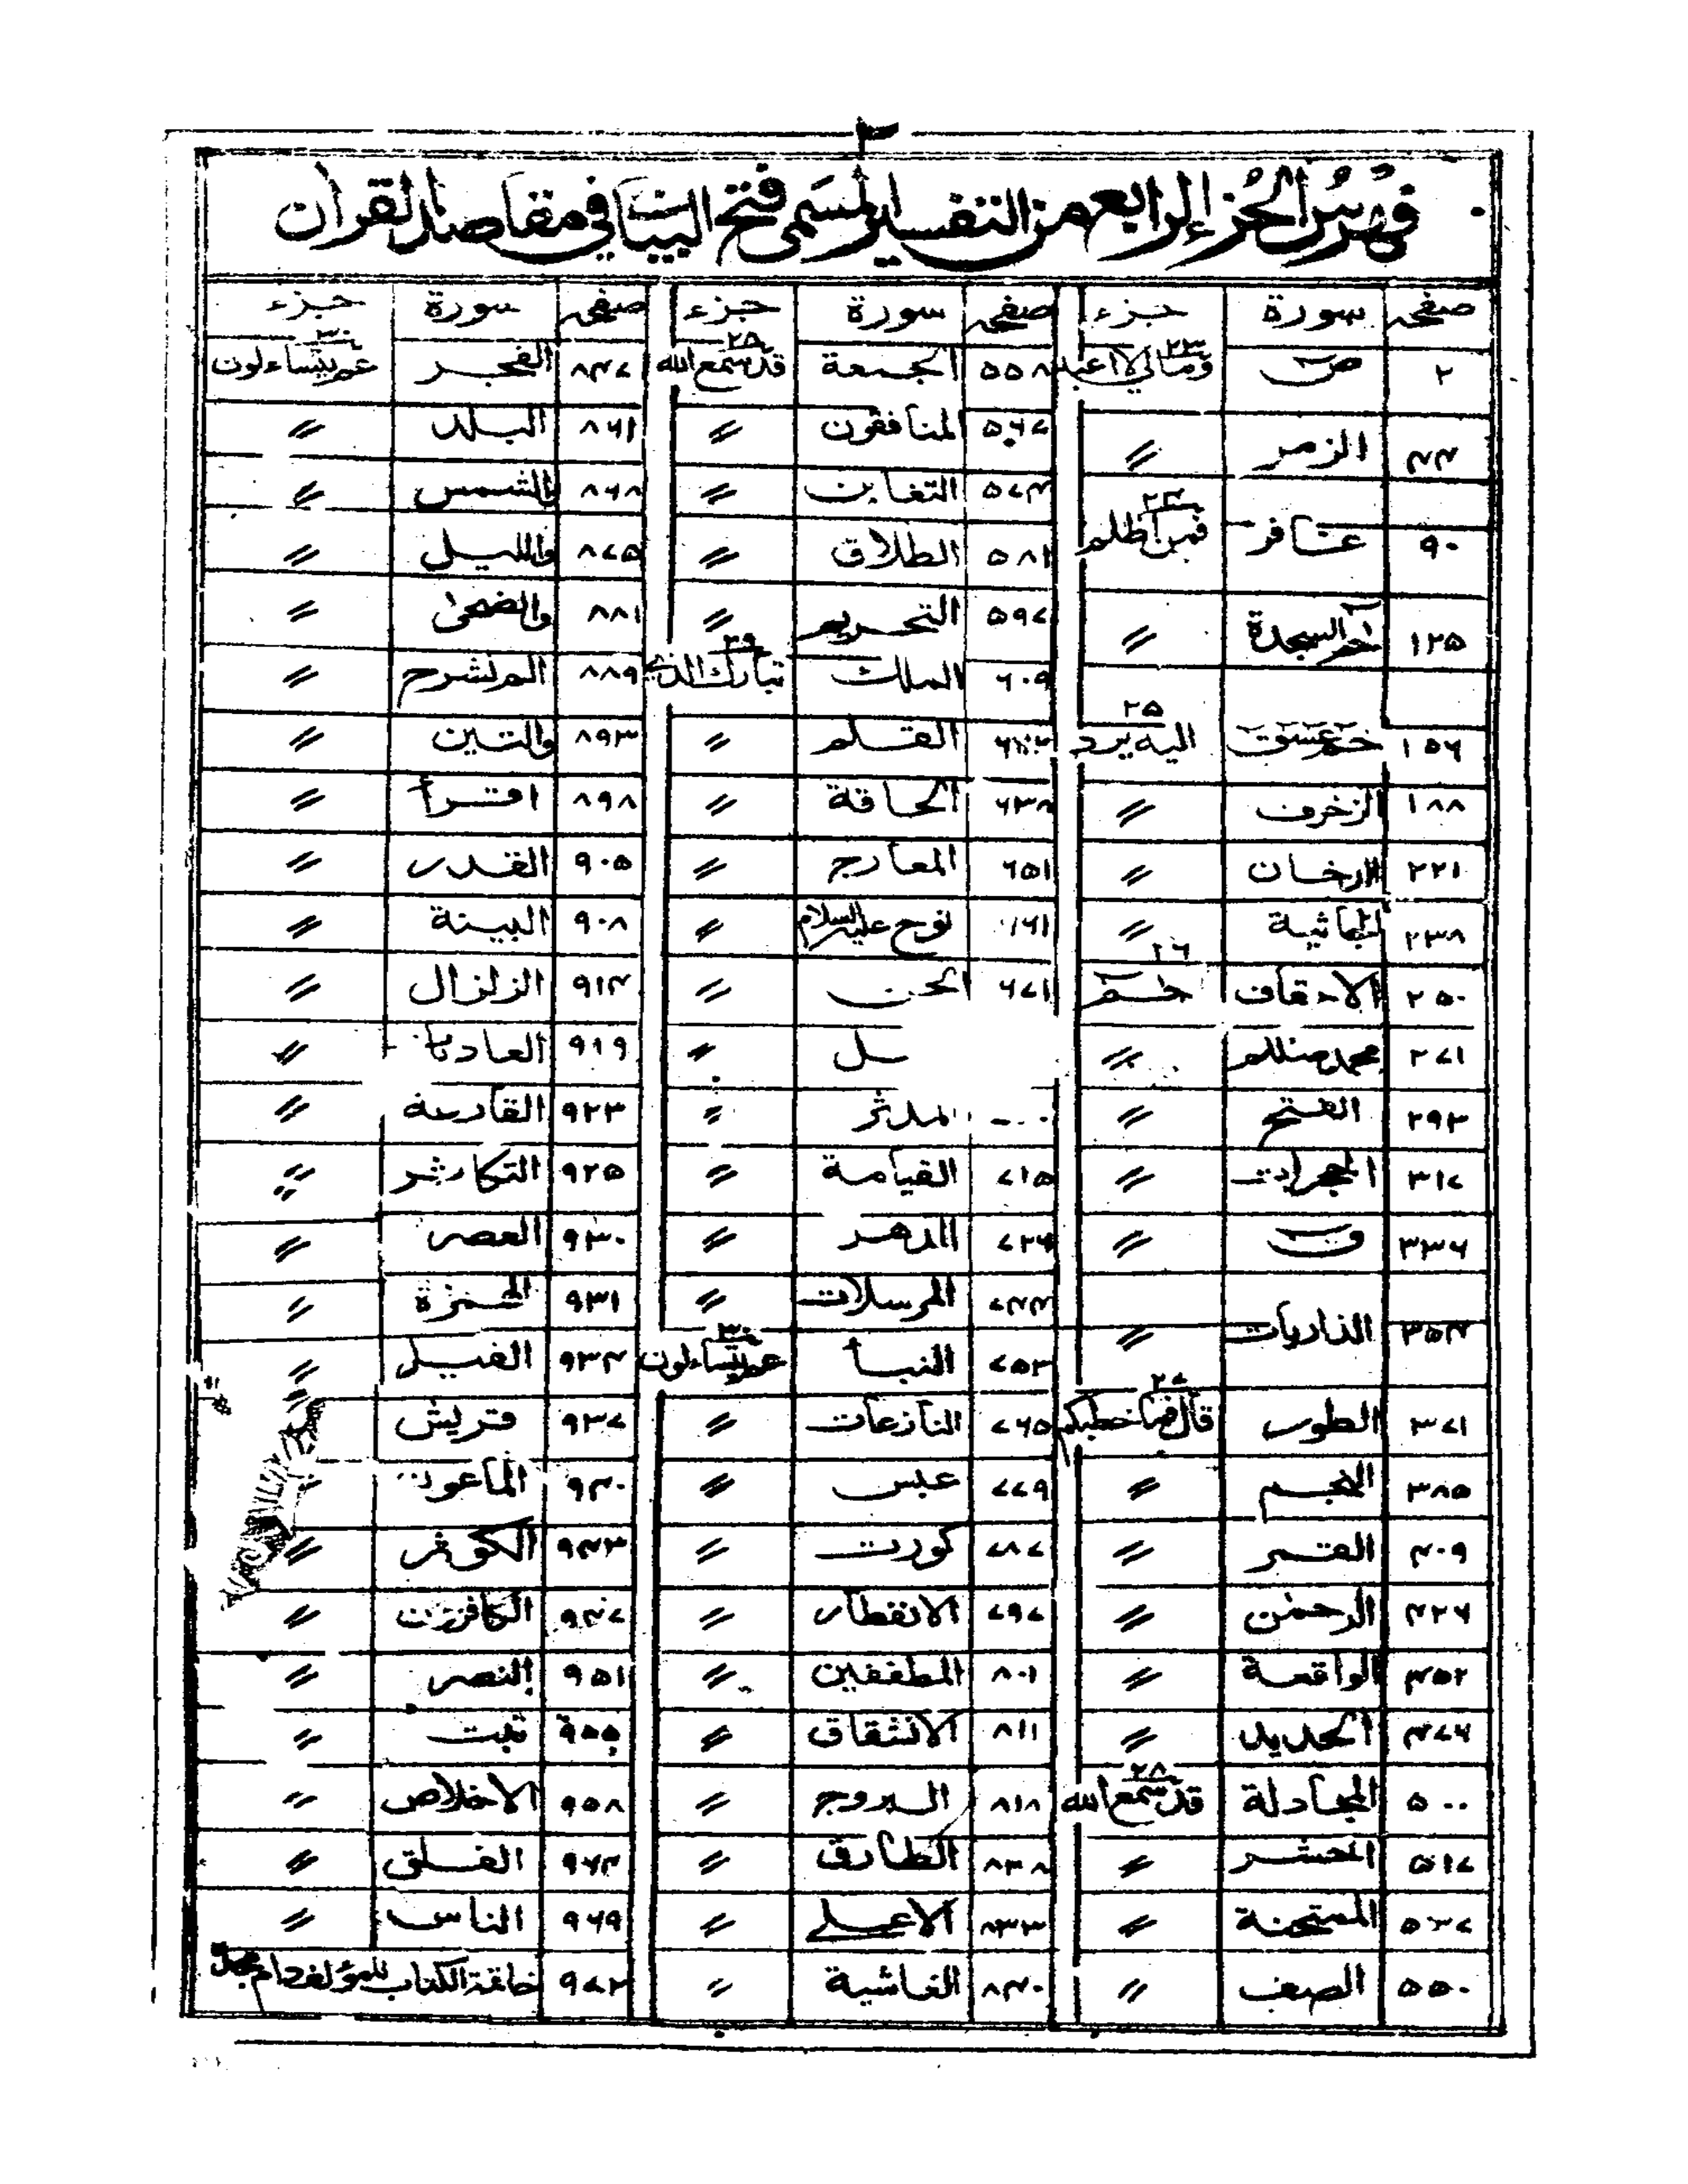 ٢
فهرس الجزء الرابع من التفسير المسمى فتح البيان في مقاصد القرآن
صفحہ سورة جزء صفحہ سورة جزء صفحہ سورة جزء
٢ ص ٢٣ ومالي لا اعبد ٥٥٨ الجمعة ٢٨ قد سمع الله ٨٤٧ الفجر ٣٠ عم يتساءلون
٤٤ الزمر // ٥٦٧ المنافقون // ٨٦١ البلد //
٩٠ غافر ٢٤ فمن اظلم ٥٧٤ التغابن // ٨٦٨ والشمس //
١٢٥ حم السجدة // ٥٨١ الطلاق // ٨٧٥ والليل //
١٥٦ حم عسق ٢٥ اليه يرد ٥٩٧ التحريم // ٨٨١ والضحى //
١٨٨ الزخرف // ٦٠٩ الملك ٢٩ تبارك الذي ٨٨٩ الم نشرح //
٢٢١ الدخان // القلم // ٨٩٣ والتين //
٢٣٨ الجاثية // ٦٣٨ الحاقة // ٨٩٨ اقترأ //
٢٥٠ الاحقاف ٢٦ حم ٦٥١ المعارج // ٩٠٥ القدر //
٢٧١ محمد صللم // ٦٦١ نوح عليه السلام // ٩٠٨ البينة //
٢٩٣ الفتح // ٦٧١ الجن // ٩١٤ الزلزال //
٣١٧ الحجرات // مل // ٩١٩ العاديا //
٣٣٦ ق // المدثر // ٩٢٣ القارعة //
٣٥٤ الذاريات // ٧١٥ القيامة // ٩٢٥ التكاثر //
٣٧١ الطور ٢٧ قال فما خطبكم ٧٢٦ الدهر // ٩٣٠ العصر //
٣٨٥ النجم // ٧٤٤ المرسلات // ٩٣١ الهمزة //
٤٠٩ القمر // ٧٥٣ النبأ ٣٠ عم يتساءلون ٩٣٤ الفيل //
٤٢٦ الرحمن // ٧٦٥ النازعات // ٩٣٧ قريش //
٤٥٢ الواقعة // ٧٧٩ عبس // ٩٤٠ الماعون //
٤٧٦ الحديد // ٧٨٧ كورت // ٩٤٣ الكوثر //
٥٠٠ المجادلة ٢٨ قد سمع الله ٧٩٧ الانفطار // ٩٤٧ الكافرون //
٥١٧ الحشر // ٨٠١ المطففين // ٩٥١ النصر //
٥٣٧ الممتحنة // ٨١١ الانشقاق // ٩٥٥ تبت //
٥٥٠ الصف // ٨١٨ البروج // ٩٥٨ الاخلاص //
٨٣٨ الطارق // ٩٦٤ الفلق //
٨٣٣ الاعلى // ٩٦٩ الناس //
٨٤٠ الغاشية // ٩٧٢ خاتمة الكتاب للمؤلف دام مجده